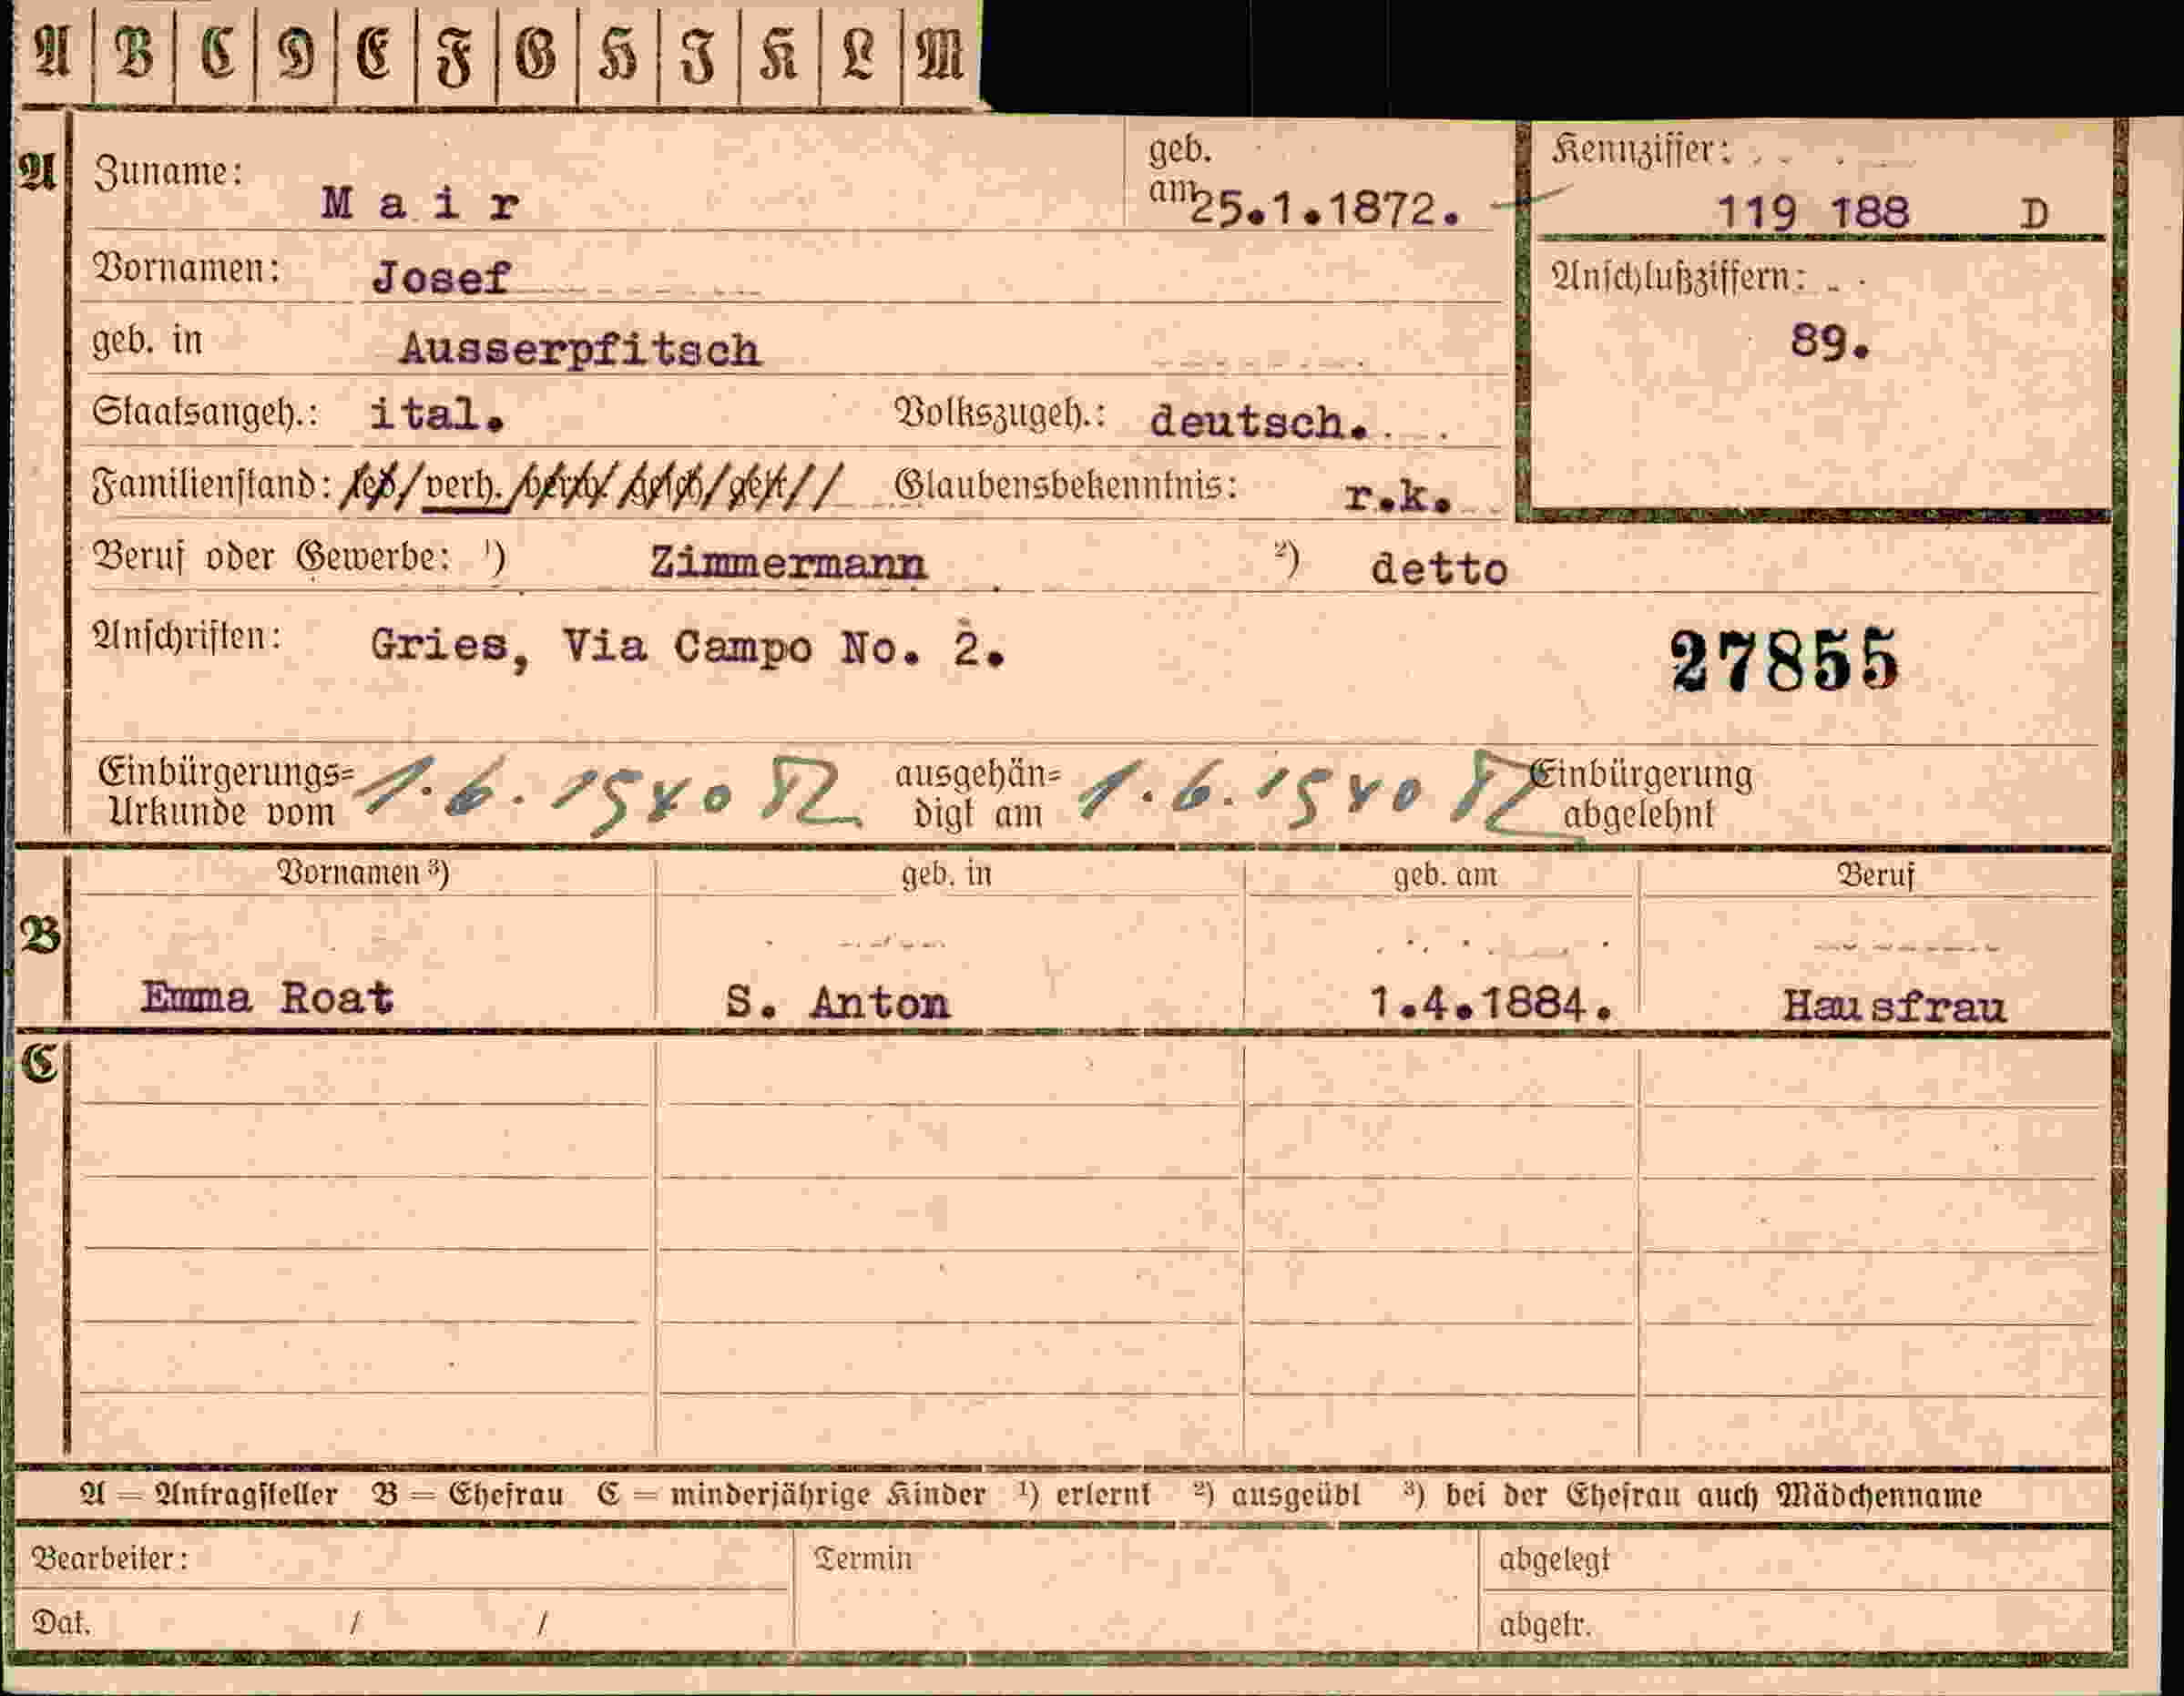 A B C D E F G H I K L M
A Zuname: Mair geb. am 25.1.1872. Kennziffer: 119 188 D
Vornamen: Josef Anschlußziffern:
geb. in Ausserpfitsch 89.
Staatsangeh.: ital. Volkszugeh.: deutsch.
Familienstand: led/verh./verw./gesch/getr// Glaubensbekenntnis: r.k.
Beruf oder Gewerbe: ¹) Zimmermann ²) detto
Anschriften: Gries, Via Campo No. 2. 27855
Einbürgerungs= 1.6.1940 ausgehän= 1.6.1940 Einbürgerung
Urkunde vom digt am abgelehnt
Vornamen ³) geb. in geb. am Beruf
B
Emma Roat S. Anton 1.4.1884. Hausfrau
C
A = Antragsteller B = Ehefrau C = minderjährige Kinder ¹) erlernt ²) ausgeübt ³) bei der Ehefrau auch Mädchenname
Bearbeiter: Termin abgelegt
Dat. / / abgetr.